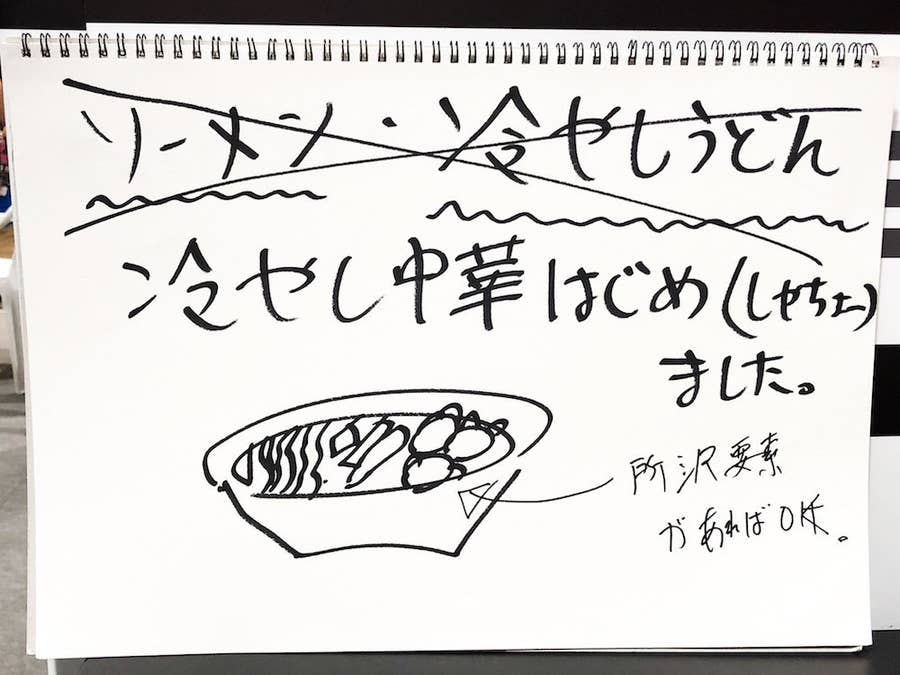 ソーメン・冷やしうどん
冷やし中華はじめ(しやち上)
ました。
所沢要素
があればOK。